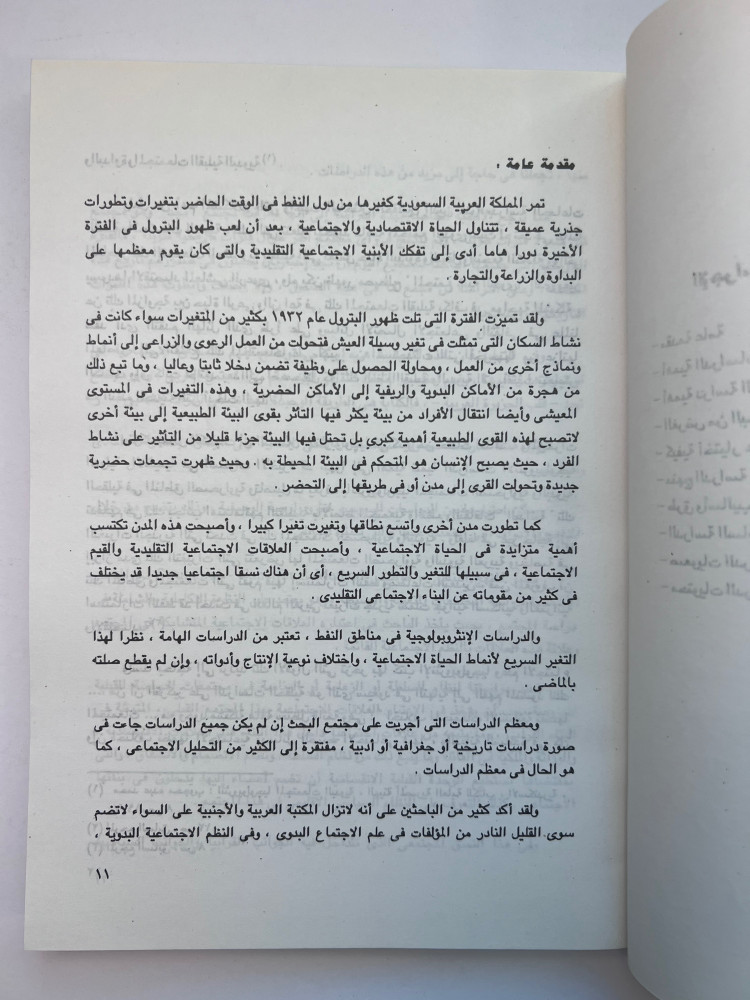 مقدمة عامة .
تمر المملكة العربية السعودية كغيرها من دول النفط فى الوقت الحاضر بتغيرات وتطورات
جذرية عميقة ، تتناول الحياة الاقتصادية والاجتماعية ، بعد أن لعب ظهور البترول فى الفترة
الأخيرة دورا هاما أدى إلى تفكك الأبنية الاجتماعية التقليدية والتى كان يقوم معظمها على
البداوة والزراعة والتجارة .
ولقد تميزت الفترة التى تلت ظهور البترول عام ١٩٣٢ بكثير من المتغيرات سواء كانت فى
نشاط السكان التى تمثلت فى تغير وسيلة العيش فتحولت من العمل الرعوى والزراعى إلى أنماط
ونماذج أخرى من العمل ، ومحاولة الحصول على وظيفة تضمن دخلا ثابتا وعاليا ، وما تبع ذلك
من هجرة من الأماكن البدوية والريفية إلى الأماكن الحضرية ، وهذه التغيرات فى المستوى
المعيشى وأيضا انتقال الأفراد من بيئة يكثر فيها التأثر بقوى البيئة الطبيعية إلى بيئة أخرى
لاتصبح لهذه القوى الطبيعية أهمية كبرى بل تحتل فيها البيئة جزءا قليلا من التأثير على نشاط
الفرد ، حيث يصبح الإنسان هو المتحكم فى البيئة المحيطة به . وحيث ظهرت تجمعات حضرية
جديدة وتحولت القرى إلى مدن أو فى طريقها إلى التحضر .
كما تطورت مدن أخرى واتسع نطاقها وتغيرت تغيرا كبيرا ، وأصبحت هذه المدن تكتسب
أهمية متزايدة فى الحياة الاجتماعية ، وأصبحت العلاقات الاجتماعية التقليدية والقيم
الاجتماعية ، فى سبيلها للتغير والتطور السريع ، أى أن هناك نسقا اجتماعيا جديدا قد يختلف
فى كثير من مقوماته عن البناء الاجتماعى التقليدى .
والدراسات الإنثروبولوجية فى مناطق النفط ، تعتبر من الدراسات الهامة ، نظرا لهذا
التغير السريع لأنماط الحياة الاجتماعية ، واختلاف نوعية الإنتاج وأدواته ، وإن لم يقطع صلته
بالماضى .
ومعظم الدراسات التى أجريت على مجتمع البحث إن لم يكن جميع الدراسات جاءت فى
صورة دراسات تاريخية أو جغرافية أو أدبية ، مفتقرة إلى الكثير من التحليل الاجتماعى ، كما
هو الحال فى معظم الدراسات .
ولقد أكد كثير من الباحثين على أنه لاتزال المكتبة العربية والأجنبية على السواء لاتضم
سوى القليل النادر من المؤلفات فى علم الاجتماع البدوى ، وفى النظم الاجتماعية البدوية ،
١١